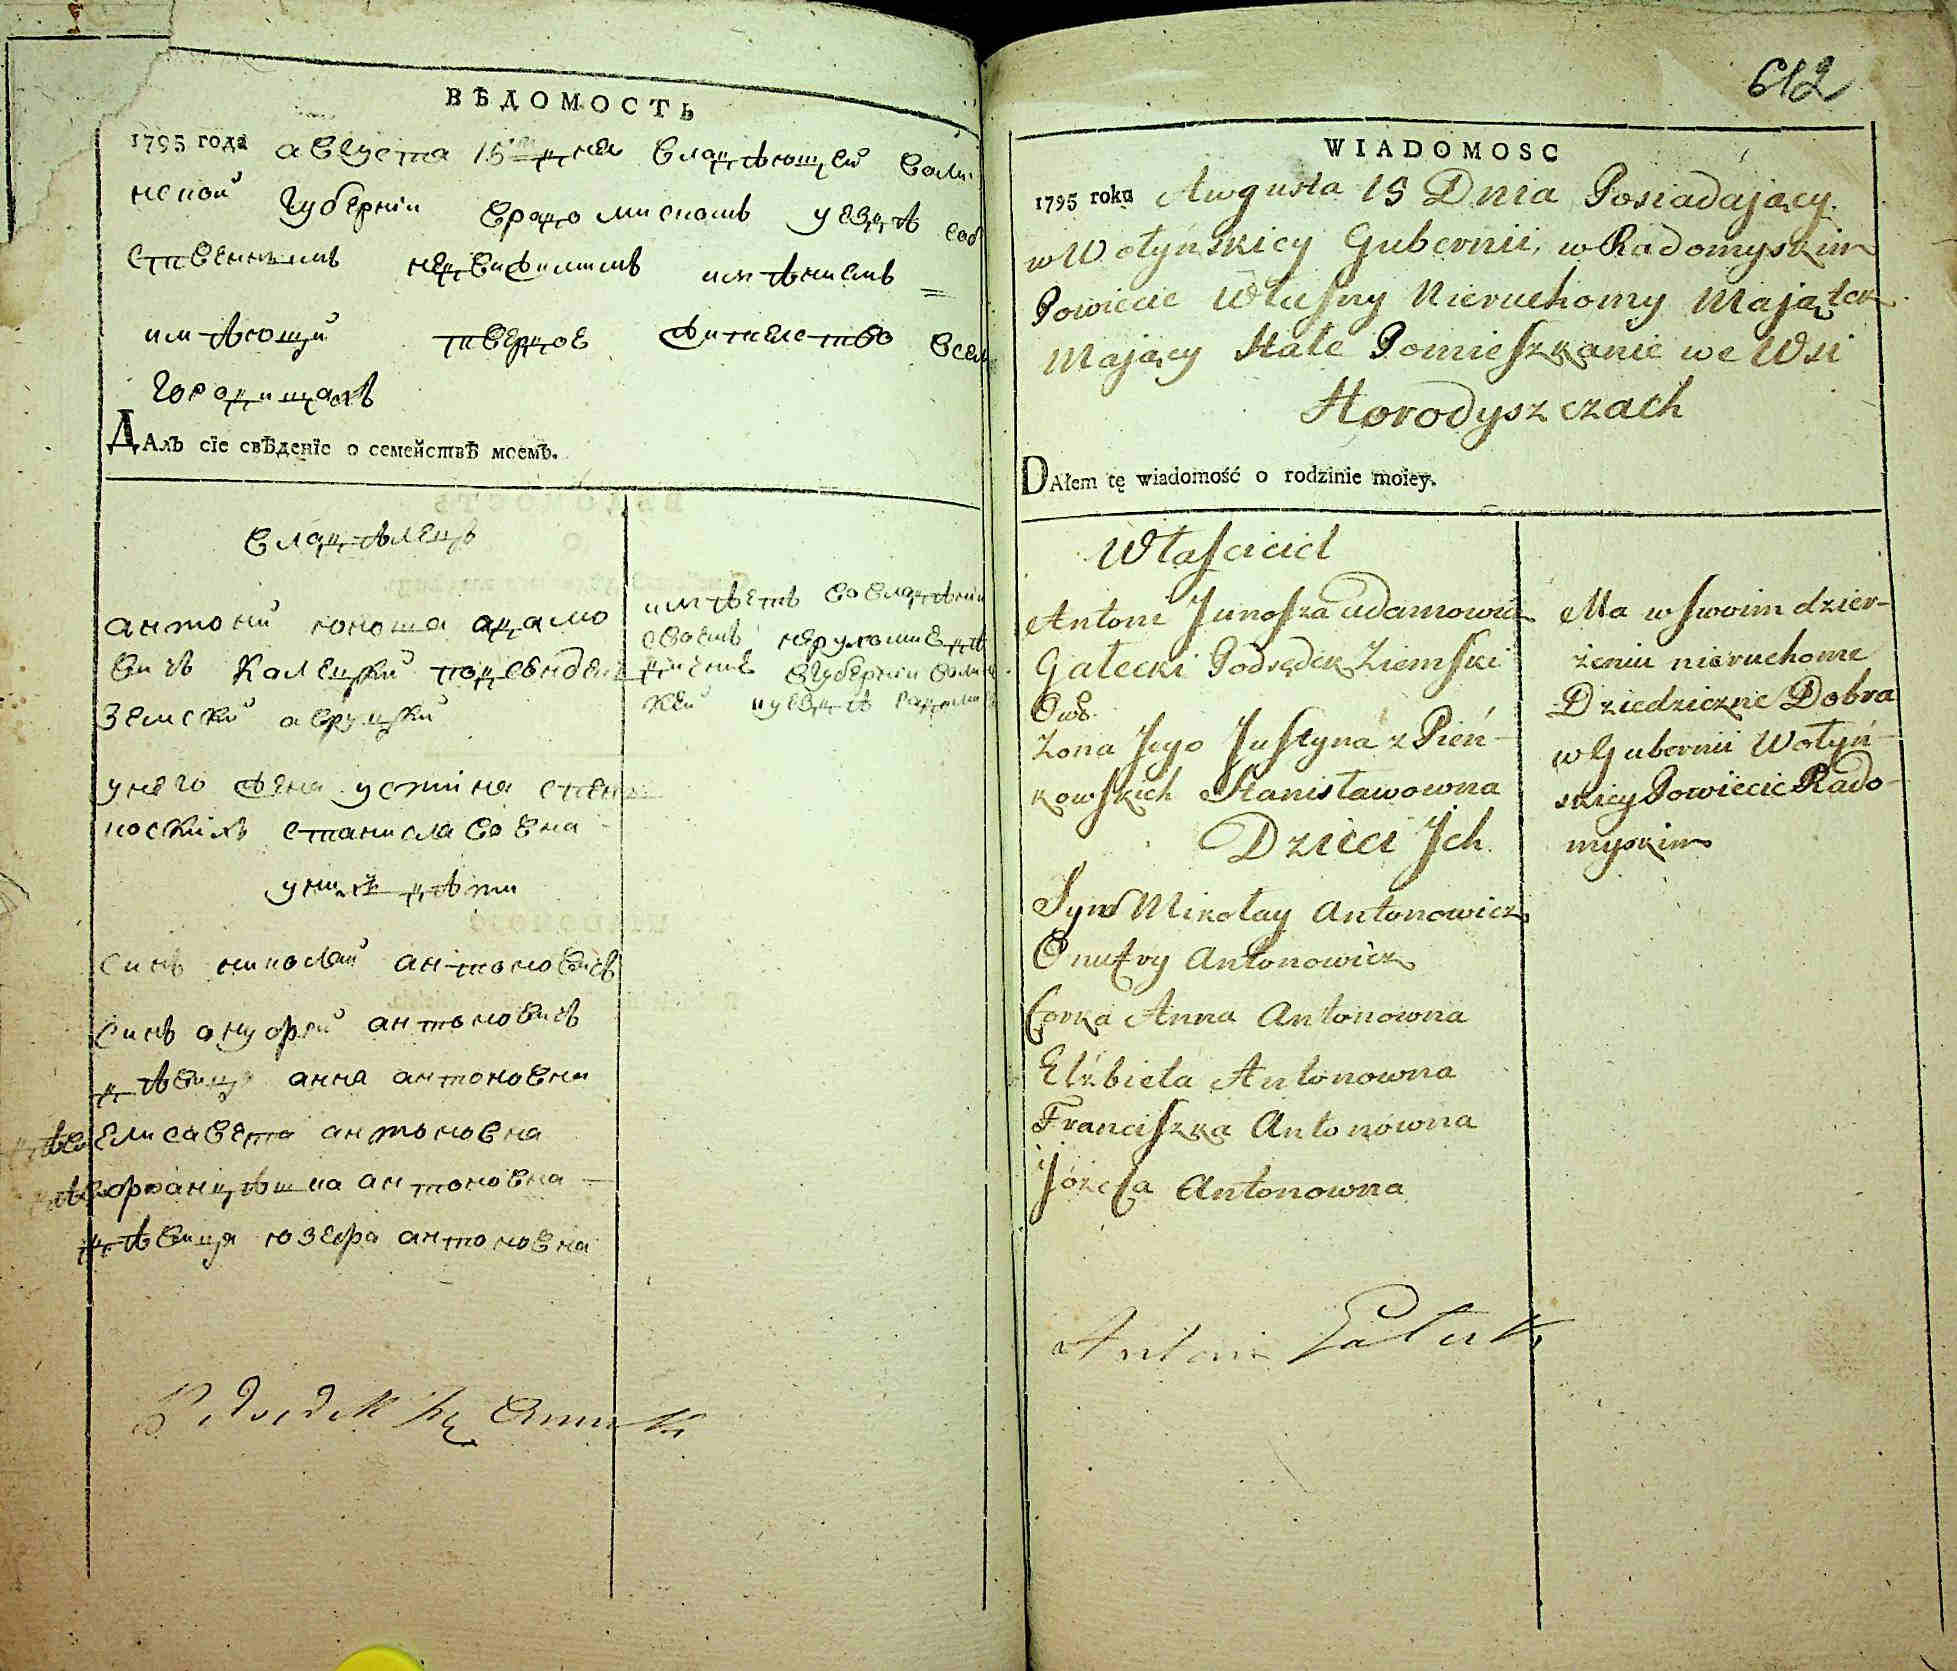 ВѢДОМОСТЬ
1795 года августа 15 дня владѣющей волы
нской Губерніи врадомискомъ уездѣ соб
ственнымъ недвижимимъ имѣниемъ =
имѣющій твердое жителство вселѣ
городищахъ
ДАлъ сїе свѣденїе о семействѣ моемъ.
владѣлецъ
антоній юноша адамо
вичъ Калецкій подсендекъ
Земскій овруцкій
унего жена устіна спен
ковскихъ станиславовна
унихъ дѣти
Синъ николай антоновичъ
Синъ онуфрій антоновичъ
дѣвица анна антоновна
дѣв елисавета антоновна
дѣв францѣшка антоновна
дѣвица юзефа антоновна
имѣетъ во владѣніи
своемъ
вгуберніи волын
ской иуездѣ радоми
612
WIADOMOSC
1795 roku Augusta 15 Dnia Posiadaiący
w Wołyńskiey Gubernii, w Radomyskim
Powiecie Własny Nieruchomy Maiątek
Maiący Stałe Pomieszkanie we Wsi
Horodyszczach
DAłem tę wiadomość o rodzinie moiey.
Właściciel
Antoni Junosza Adamowicz
Gałecki Podsędek Ziemski
Ow:
Zona Jego Justyna z Pień-
kowskich Stanisławowna
Dzieci Jch
Syn Mikołay Antonowicz
Onufry Antonowicz
Corka Anna Antonowna
Elżbieta Antonowna
Franciszka Antonowna
Józefa Antonowna
Ma w swoim dzier-
żeniu nieruchome
Dziedziczne Dobra
w Gubernii Wołyń-
skiey Powiecie Rado-
myskim
Antoni Gałecki
Podsędek